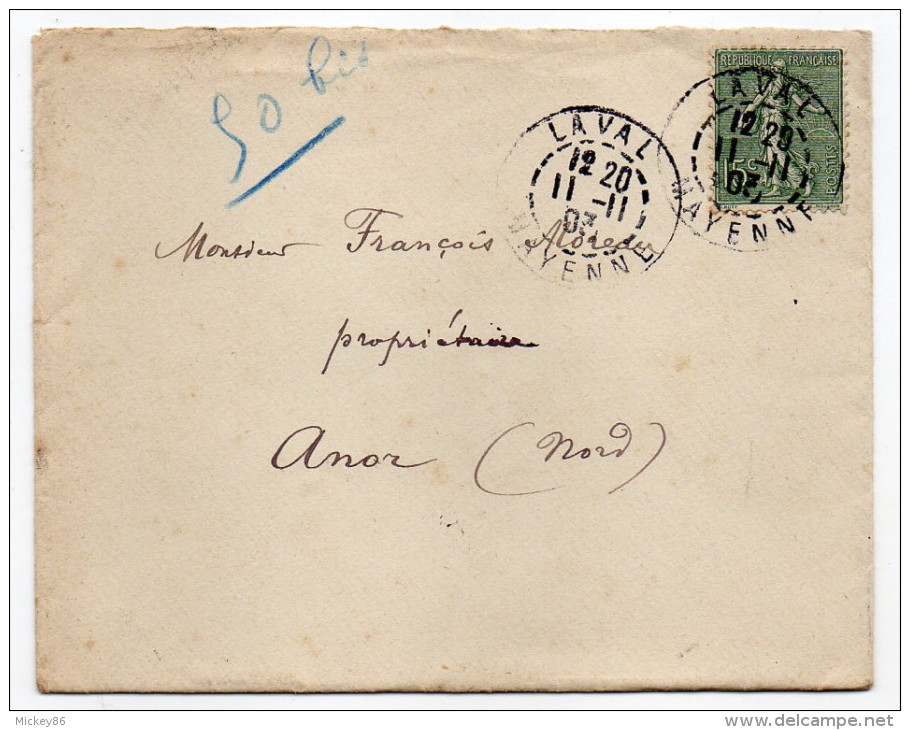 50 bis
RÉPUBLIQUE FRANÇAISE
15c
POSTES
LAVAL
12 20
11 -11
03
MAYENNE
LAVAL
12 20
11 -11
03
MAYENNE
Monsieur François Moreau
propriétaire
Anor (Nord)
Mickey86
www.delcampe.net